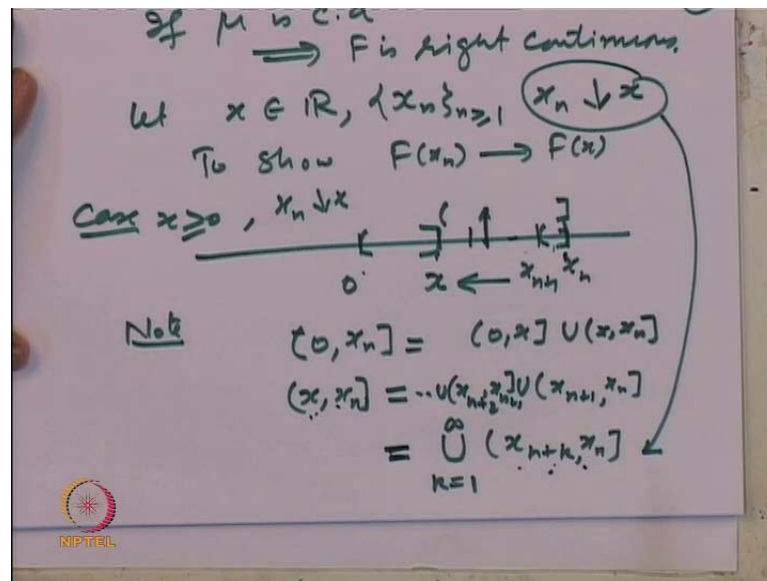 If μ is c.a
⟹ F is right continuous.
Let x ∈ ℝ, {xₙ}ₙ≥₁ xₙ ↓ x
To show F(xₙ) ⟶ F(x)
Case x ≥ 0, xₙ ↓ x
0 x ← xₙ₊₁ xₙ
Note (0, xₙ] = (0, x] ∪ (x, xₙ]
(x, xₙ] = ‥ ∪ (xₙ₊₂, xₙ₊₁] ∪ (xₙ₊₁, xₙ]
= ∞ ∪ k=1 (xₙ₊ₖ, xₙ]
NPTEL